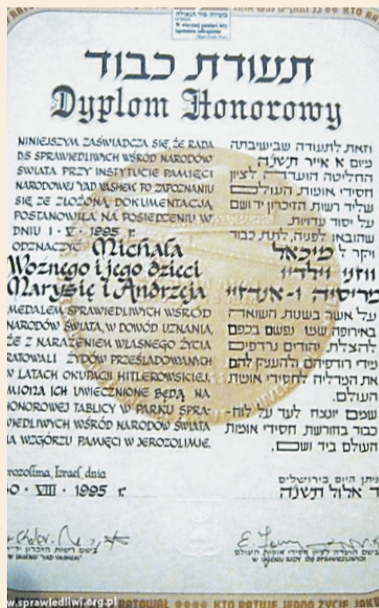 RATUJE JEDNO ŻYCIE
KTO RATO
תעודת כבוד
Dyplom Honorowy
NINIEJSZYM ZAŚWIADCZA SIĘ, ŻE RADA
D/S SPRAWIEDLIWYCH WŚRÓD NARODÓW
ŚWIATA PRZY INSTYTUCIE PAMIĘCI
NARODOWEJ YAD VASHEM PO ZAPOZNANIU
SIĘ ZE ZŁOŻONĄ DOKUMENTACJĄ
POSTANOWIŁA NA POSIEDZENIU W
DNIU 1 · V · 1995 r.
ODZNACZYĆ Michała
Woźnego i jego dzieci
Marysię i Andrzeja
MEDALEM SPRAWIEDLIWYCH WŚRÓD
NARODÓW ŚWIATA, W DOWÓD UZNANIA,
ŻE Z NARAŻENIEM WŁASNEGO ŻYCIA
RATOWALI ŻYDÓW PRZEŚLADOWANYCH
W LATACH OKUPACJI HITLEROWSKIEJ.
IMIONA ICH UWIECZNIONE BĘDĄ NA
HONOROWEJ TABLICY W PARKU SPRA-
WIEDLIWYCH WŚRÓD NARODÓW ŚWIATA
NA WZGÓRZU PAMIĘCI W JEROZOLIMIE.
וזאת לתעודה שבישיבתה
מיום א אייר תשנ"ה
החליטה הועדה לציון
חסידי אומות העולם
שליד רשות הזיכרון יד ושם
על יסוד עדויות
שהובאו לפניה, לתת כבוד
ויקר ל מיכאל
ווזני וילדיו
מריסיה ו-אנדזיי
על אשר בשנות השואה
באירופה שמו נפשם בכפם
להצלת יהודים נרדפים
מידי רודפיהם ולהעניק להם
את המדליה לחסידי אומות
העולם.
שמם יונצח לעד על לוח-
כבוד בחורשת חסידי אומות
העולם ביד ושם.
Jerozolima, Izrael, dnia
30 · VIII · 1995 r.
ניתן היום בירושלים
ד אלול תשנ"ה
בשם רשות הזכרון יד ושם
W IMIENIU "YAD VASHEM"
בשם הועדה לציון חסידי אומות העולם
www.sprawiedliwi.org.pl
RATOWAŁ
KTO RATUJE JEDNO ŻYCIE JAK